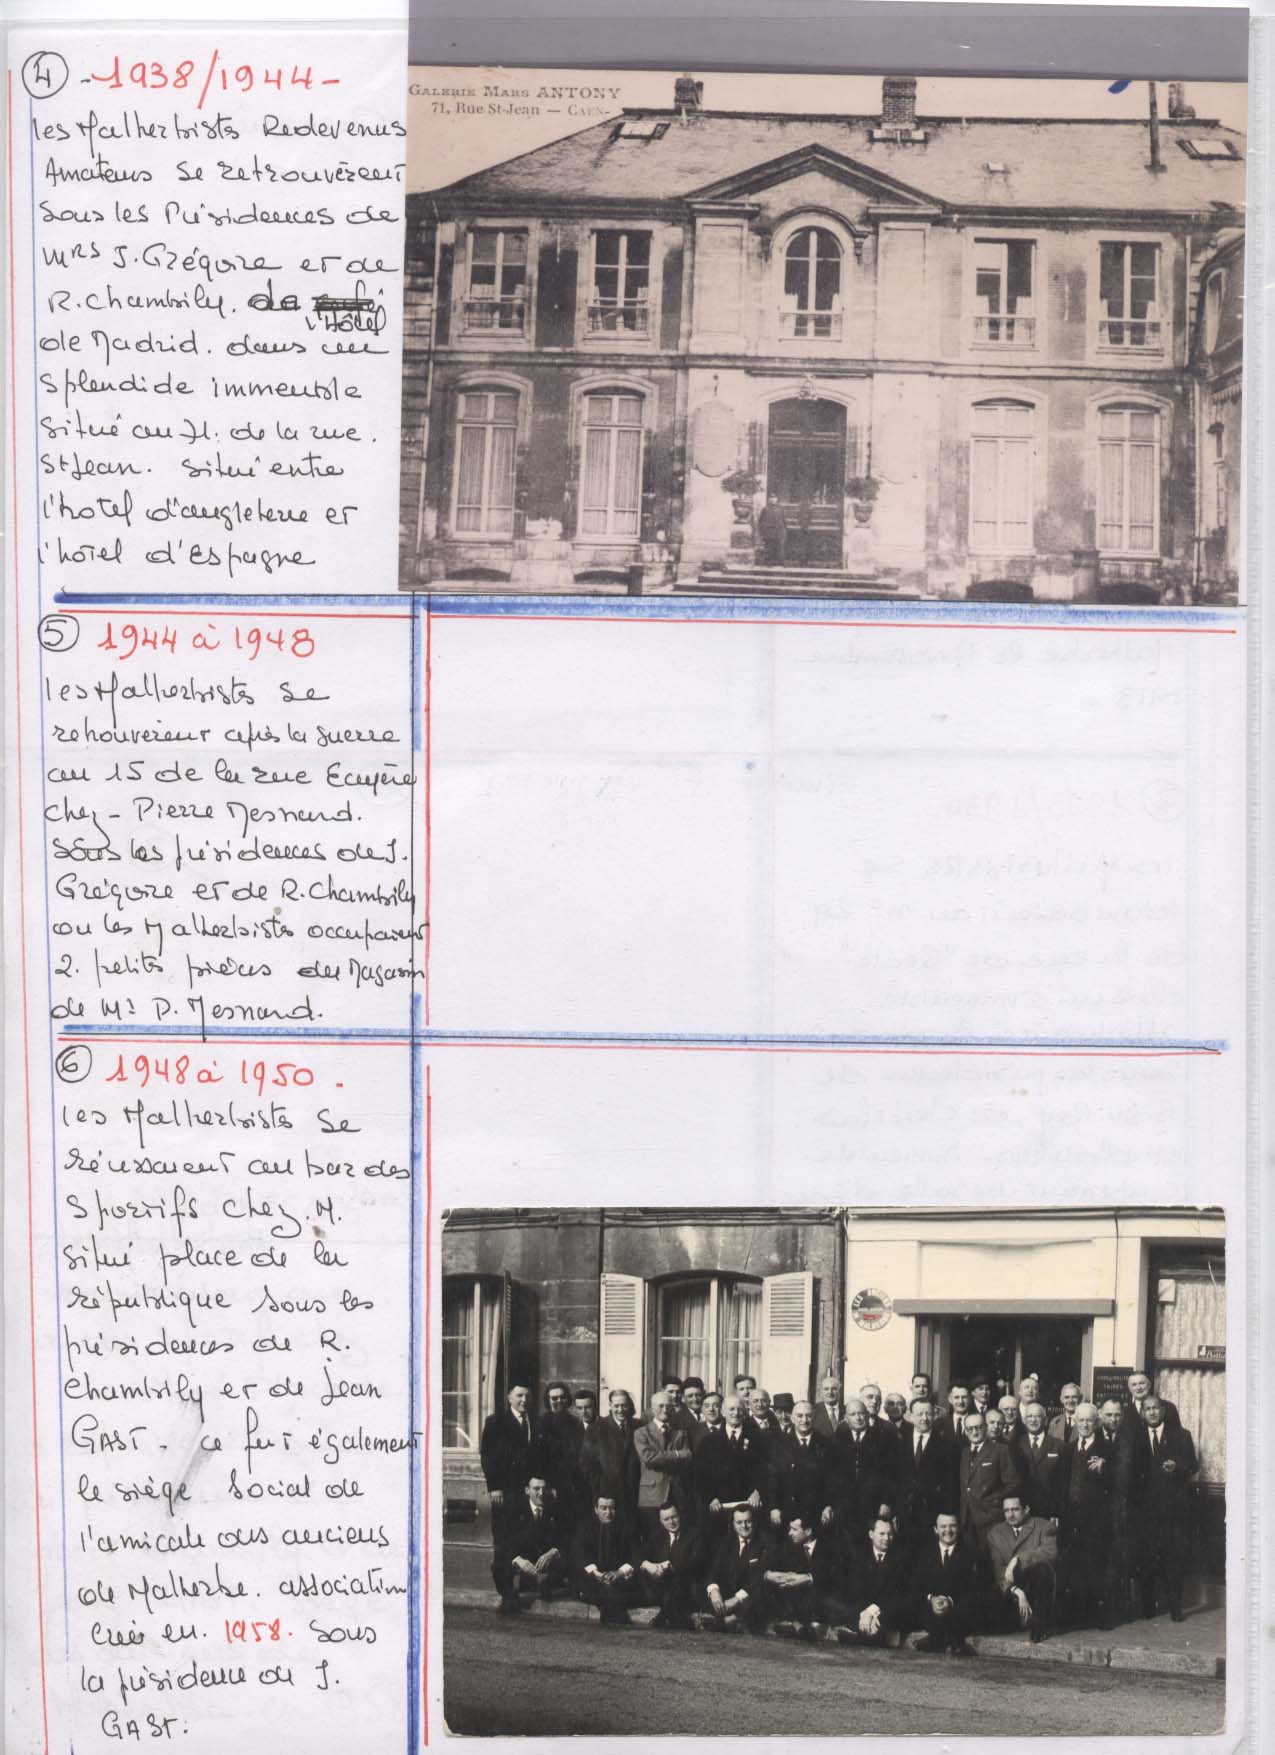 4 - 1938/1944 -
les Malherbistes Redevenus
Amateurs se retrouvèrent
sous les Présidences de
MRS J. Grégoire et de
R. Chambily. de
l'Hôtel
de Madrid. dans un
splendide immeuble
situé au 71. de la rue.
St Jean. situé entre
l'hotel d'angleterre et
l'hôtel d'Espagne
GALERIE MARS ANTONY
71, Rue St-Jean — CAEN-
5 1944 à 1948
les Malherbistes se
retrouvèrent après la guerre
au 15 de la rue Ecuyère
chez - Pierre Mesnard.
sous les présidences de J.
Grégoire et de R. Chambily
ou les Malherbistes occupaient
2. petites pièces du Magasin
de Mr P. Mesnard.
6 1948 à 1950 .
les Malherbistes se
réunissaient au bar des
sportifs chez. M.
situé place de la
république sous les
présidences de R.
Chambily et de Jean
GAST. ce fut également
le siège social de
l'amicale des anciens
de Malherbe. association
créé en. 1958. sous
la présidence de J.
GAST.